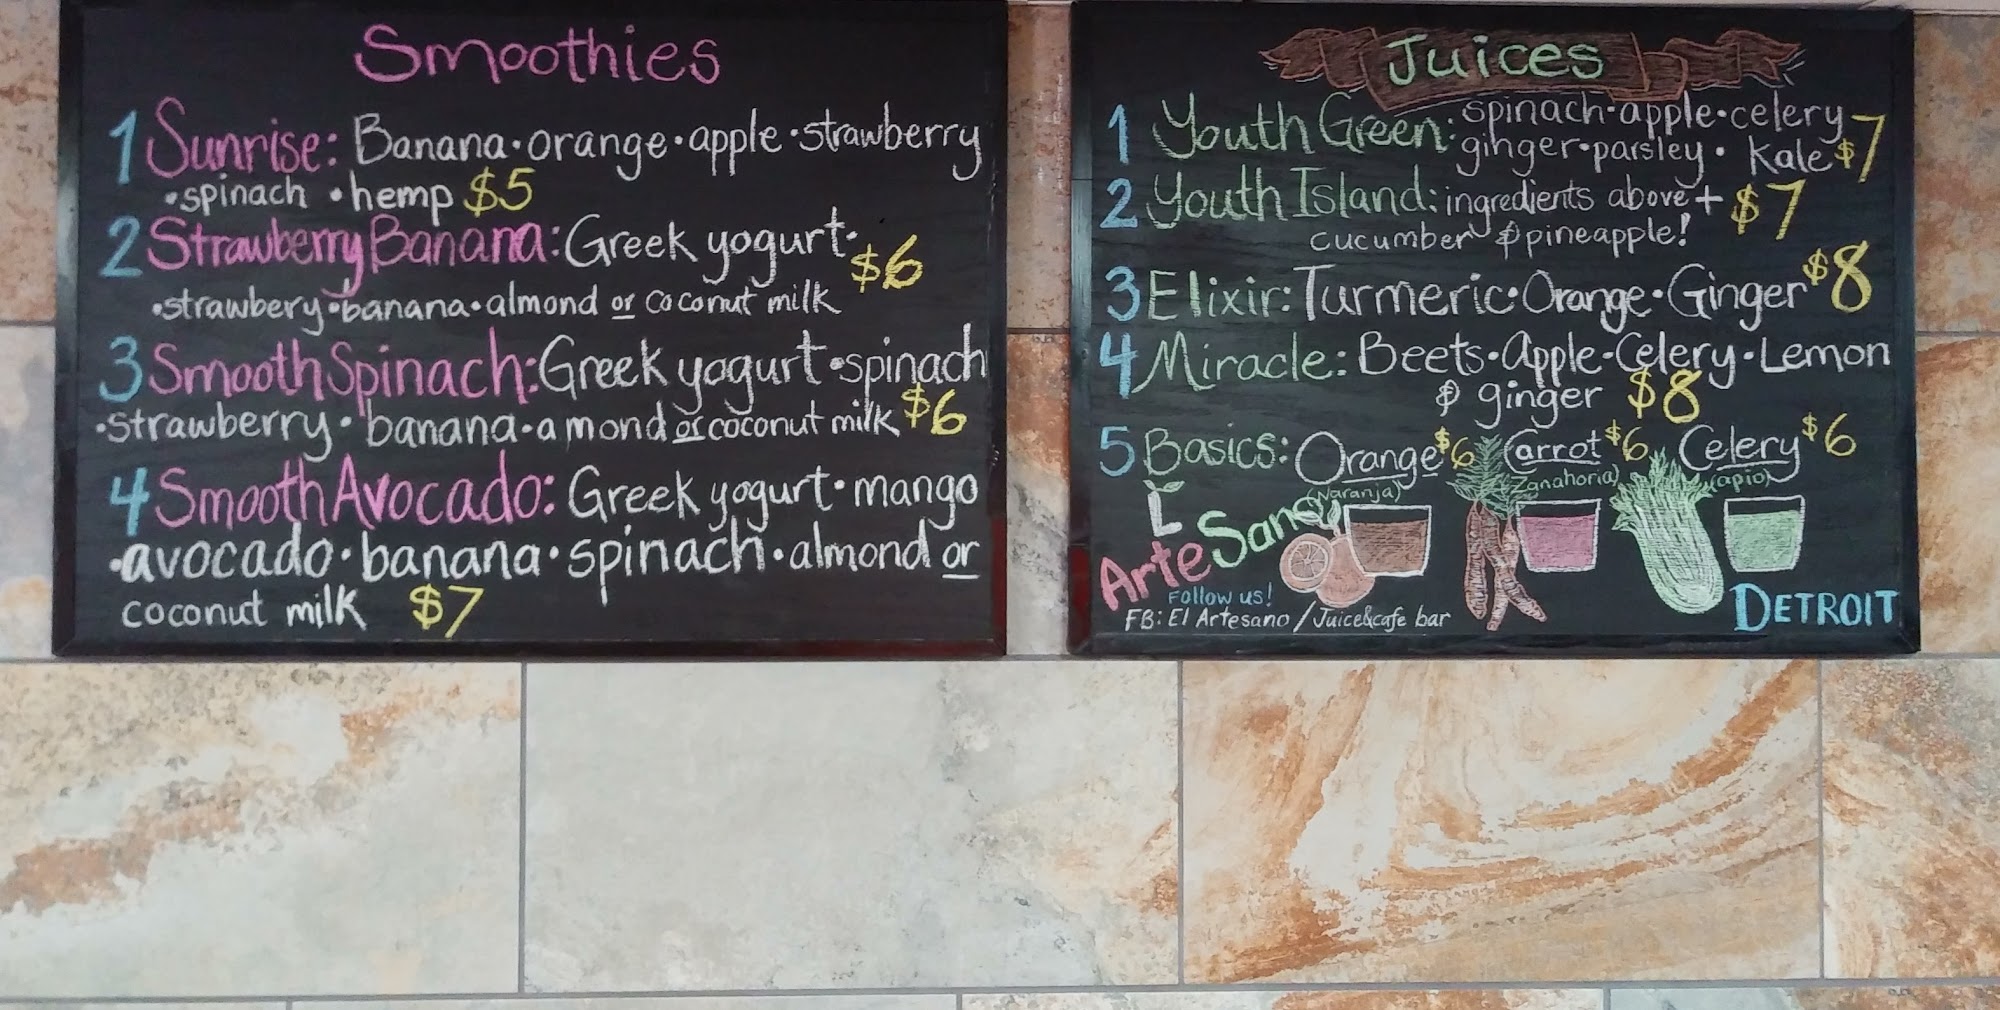 Smoothies
1 Sunrise: Banana • orange • apple • strawberry
• spinach • hemp $5
2 Strawberry Banana: Greek yogurt •
• strawbery • banana • almond or coconut milk $6
3 Smooth Spinach: Greek yogurt • spinach
• strawberry • banana • amond or coconut milk $6
4 Smooth Avocado: Greek yogurt • mango
• avocado • banana • spinach • almond or
coconut milk $7
Juices
1 Youth Green: spinach • apple • celery
ginger • parsley • Kale $7
2 Youth Island: ingredients above +
cucumber & pineapple! $7
3 Elixir: Turmeric • Orange • Ginger $8
4 Miracle: Beets • Apple • Celery • Lemon
& ginger $8
5 Basics: Orange $6 Carrot $6 Celery $6
(Naranja) (Zanahoria) (apio)
El ArteSano
Follow us!
FB: El Artesano / Juice&cafe bar
DETROIT